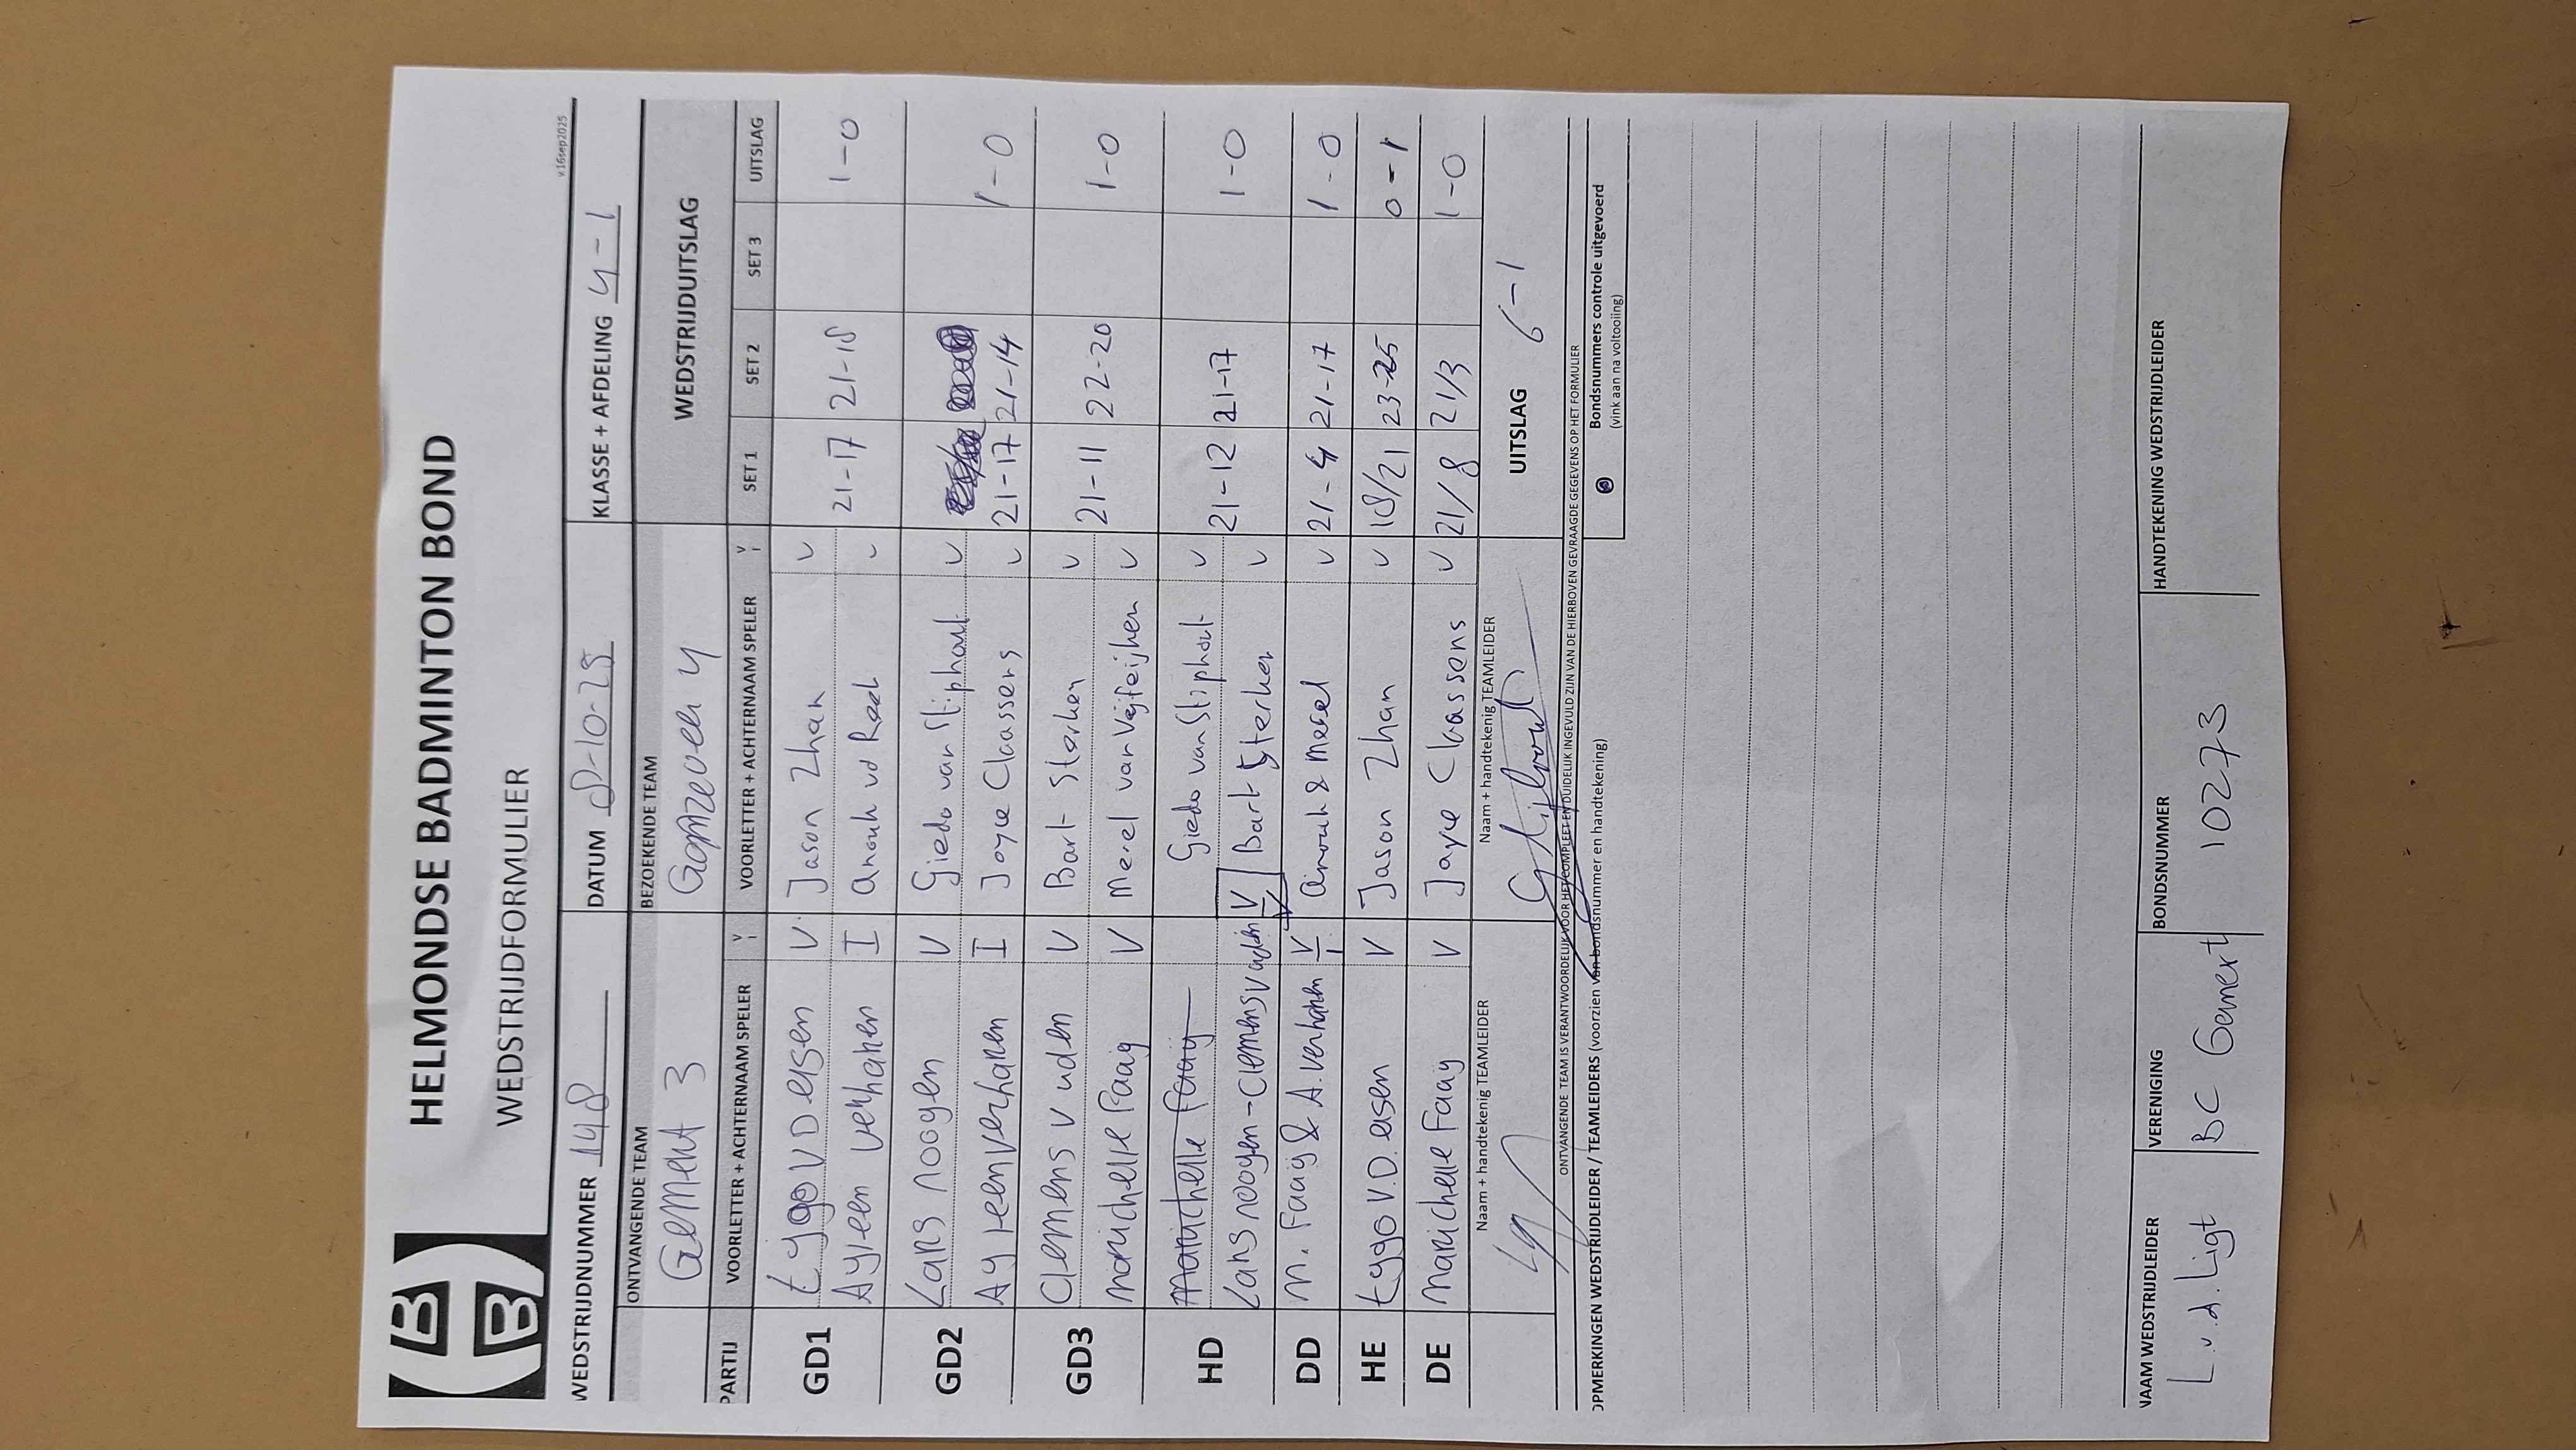 HELMONDSE BADMINTON BOND
WEDSTRIJDFORMULIER
v16sep2025
WEDSTRIJDNUMMER 148 DATUM 8-10-25 KLASSE + AFDELING 4-1
ONTVANGENDE TEAM BEZOEKENDE TEAM WEDSTRIJDUITSLAG
Gemert 3 Gamzoven 4
PARTIJ VOORLETTER + ACHTERNAAM SPELER V I VOORLETTER + ACHTERNAAM SPELER V I SET 1 SET 2 SET 3 UITSLAG
GD1 Tygo V D elsen V Jason Zhan v
Ayleen Verhahen I anouk vd Rood v 21-17 21-18 1-0
GD2 Lars noogen V Giedo van Stiphout v
Ayleen verhahen I Joyce Claassens v 21-17 21-14 1-0
GD3 Clemens v uden V Bart Sterken v
marichelle Faaij V Merel van Vejfeijken v 21-11 22-20 1-0
HD Marichelle Faaij Giedo van Stiphout v
Lars noogen-Clemens V uden V Bart Sterken v 21-12 21-17 1-0
DD M. Faaij & A. Verhahen V Anouk & Merel v 21-4 21-17 1-0
HE Tygo V.D. elsen V Jason Zhan v 18/21 23-25 0-1
DE Marichelle Faaij V Joyce Claassens v 21/8 21/3 1-0
Naam + handtekenig TEAMLEIDER Naam + handtekenig TEAMLEIDER UITSLAG 6-1
ONTVANGENDE TEAM IS VERANTWOORDELIJK VOOR HET COMPLEET EN DUIDELIJK INGEVULD ZIJN VAN DE HIERBOVEN GEVRAAGDE GEGEVENS OP HET FORMULIER
OPMERKINGEN WEDSTRIJDLEIDER / TEAMLEIDERS (voorzien van bondsnummer en handtekening)
Bondsnummers controle uitgevoerd
(vink aan na voltooiing)
NAAM WEDSTRIJDLEIDER VERENIGING BONDSNUMMER HANDTEKENING WEDSTRIJDLEIDER
L.v.d. Ligt BC Gemert 10273